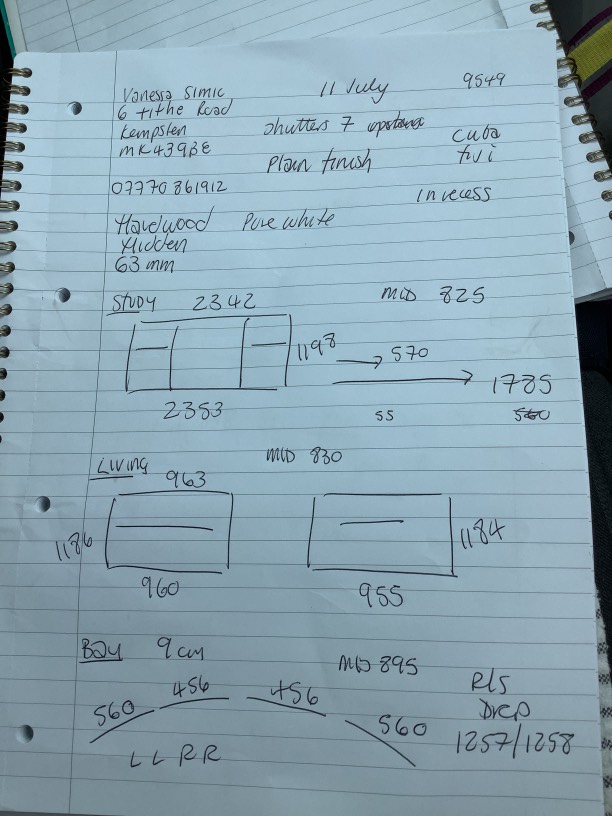 Vanessa Simic 11 July 9549
6 tithe Road
Kempsten Shutters 7 Cuba
MK439BE Plain finish
07770861912 In recess
Hardwood Pure white
Hidden
63mm
Study 2342 MID 825
1198 → 570
→ 1785
2353 55
Living MID 830
963
1186 1184
960 955
Bay 9cm MID 895
456 456 RLS
560 560 Drop
L L R R 1257/1258